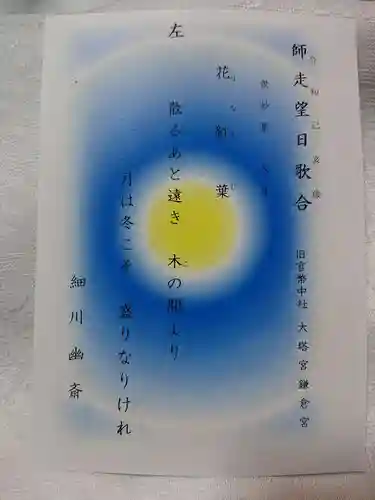 師走望日歌合 旧官幣中社 大塔宮鎌倉宮
花紅葉
左 散るあと遠き 木の間より
月は冬こそ 盛りなりけれ
細川幽斎